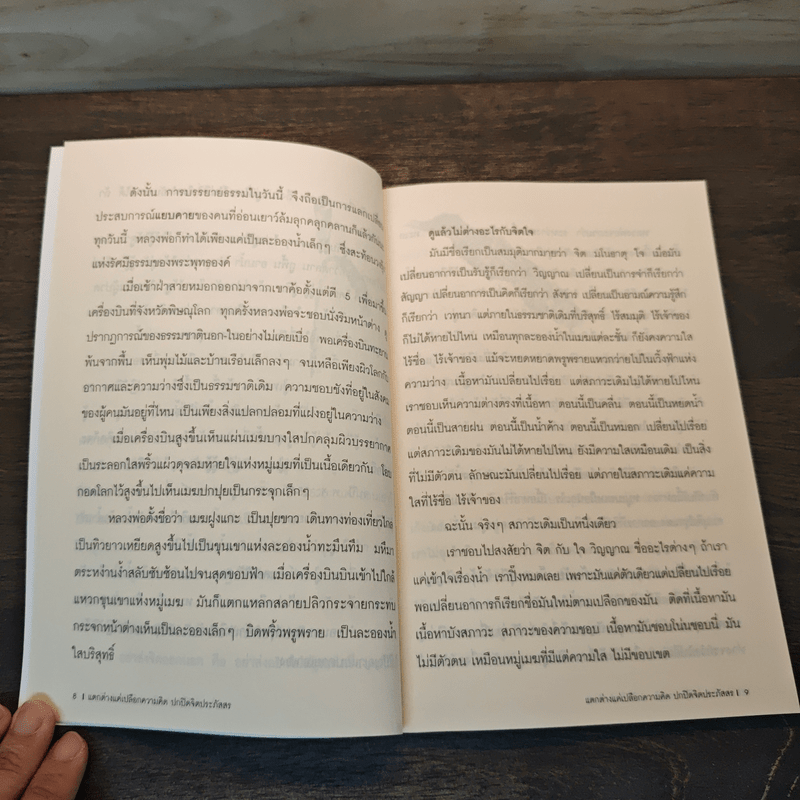 ดังนั้น การบรรยายธรรมในวันนี้ จึงถือเป็นการแลกเปลี่ยน
ประสบการณ์แยบคายของคนที่อ่อนเยาว์ล้มลุกคลุกคลานก็แล้วกัน
ทุกวันนี้ หลวงพ่อก็ทำได้เพียงแค่เป็นละอองน้ำเล็กๆ ซึ่งสะท้อน
แห่งรัศมีธรรมของพระพุทธองค์
เมื่อเช้าฝ่าสายหมอกออกมาจากเขาค้อตั้งแต่ตี 5 เพื่อมาขึ้น
เครื่องบินที่จังหวัดพิษณุโลก ทุกครั้งหลวงพ่อจะชอบนั่งริมหน้าต่าง
ปรากฏการณ์ของธรรมชาตินอก-ในอย่างไม่เคยเบื่อ พอเครื่องบินทะยาน
พ้นจากพื้น เห็นพุ่มไม้และบ้านเรือนเล็กลงๆ จนเหลือเพียงผิวโลกกับ
อากาศและความว่างซึ่งเป็นธรรมชาติเดิม ความชอบชังที่อยู่ในสังคม
ของผู้คนมันอยู่ที่ไหน เป็นเพียงสิ่งแปลกปลอมที่แฝงอยู่ในความว่าง
เมื่อเครื่องบินสูงขึ้นเห็นแผ่นเมฆบางใสปกคลุมผิวบรรยากาศ
เป็นระลอกใสพริ้วแผ่วดุจลมหายใจแห่งหมู่เมฆที่เป็นเนื้อเดียวกัน
กอดโลกไว้สูงขึ้นไปเห็นเมฆปกปุยเป็นกระจุกเล็กๆ
หลวงพ่อตั้งชื่อว่า เมฆฝูงแกะ เป็นปุยขาว เดินทางท่องเที่ยวไกล
เป็นทิวยาวเหยียดสูงขึ้นไปเป็นขุนเขาแห่งละอองน้ำทะมึนทึม มหึมา
ตระหง่านง้ำสลับซับซ้อนไปจนสุดขอบฟ้า เมื่อเครื่องบินบินเข้าไปใกล้
แหวกขุนเขาแห่งหมู่เมฆ มันก็แตกแหลกสลายปลิวกระจายกระทบ
กระจกหน้าต่างเห็นเป็นละอองเล็กๆ บิดพริ้วพรูพราย เป็นละอองน้ำ
ใสบริสุทธิ์
8 | แตกต่างแค่เปลือกความคิด ปกปิดจิตประภัสสร
ดูแล้วไม่ต่างอะไรกับจิตใจ
มันมีชื่อเรียกเป็นสมมุติมากมายว่า จิต มโนธาตุ ใจ เมื่อมัน
เปลี่ยนอาการเป็นรับรู้ก็เรียกว่า วิญญาณ เปลี่ยนเป็นการจำก็เรียกว่า
สัญญา เปลี่ยนอาการเป็นคิดก็เรียกว่า สังขาร เปลี่ยนเป็นอารมณ์ความรู้สึก
ก็เรียกว่า เวทนา แต่ภายในธรรมชาติเดิมที่บริสุทธิ์ ไร้สมมุติ ไร้เจ้าของ
ก็ไม่ได้หายไปไหน เหมือนทุกละอองน้ำในเมฆแต่ละชั้น ก็ยังคงความใส
ไร้ชื่อ ไร้เจ้าของ แม้จะหยดหยาดพรูพรายแหวกว่ายไปในเวิ้งฟ้าแห่ง
ความว่าง เนื้อหามันเปลี่ยนไปเรื่อย แต่สภาวะเดิมไม่ได้หายไปไหน
เราชอบเห็นความต่างตรงที่เนื้อหา ตอนนี้เป็นคลื่น ตอนนี้เป็นหยดน้ำ
ตอนนี้เป็นสายฝน ตอนนี้เป็นน้ำค้าง ตอนนี้เป็นหมอก เปลี่ยนไปเรื่อย
แต่สภาวะเดิมของมันไม่ได้หายไปไหน ยังมีความใสเหมือนเดิม เป็นสิ่ง
ที่ไม่มีตัวตน ลักษณะมันเปลี่ยนไปเรื่อย แต่ภายในสภาวะเดิมแค่ความ
ใสที่ไร้ชื่อ ไร้เจ้าของ
ฉะนั้น จริงๆ สภาวะเดิมเป็นหนึ่งเดียว
เราชอบไปสงสัยว่า จิต กับ ใจ วิญญาณ ชื่ออะไรต่างๆ ถ้าเรา
แค่เข้าใจเรื่องน้ำ เราปิ๊งหมดเลย เพราะมันแค่ตัวเดียวแต่เปลี่ยนไปเรื่อย
พอเปลี่ยนอาการก็เรียกชื่อมันใหม่ตามเปลือกของมัน ติดที่เนื้อหามัน
เนื้อหาบังสภาวะ สภาวะของความชอบ เนื้อหามันชอบโน่นชอบนี่ มัน
ไม่มีตัวตน เหมือนหมู่เมฆที่มีแต่ความใส ไม่มีขอบเขต
แตกต่างแค่เปลือกความคิด ปกปิดจิตประภัสสร | 9